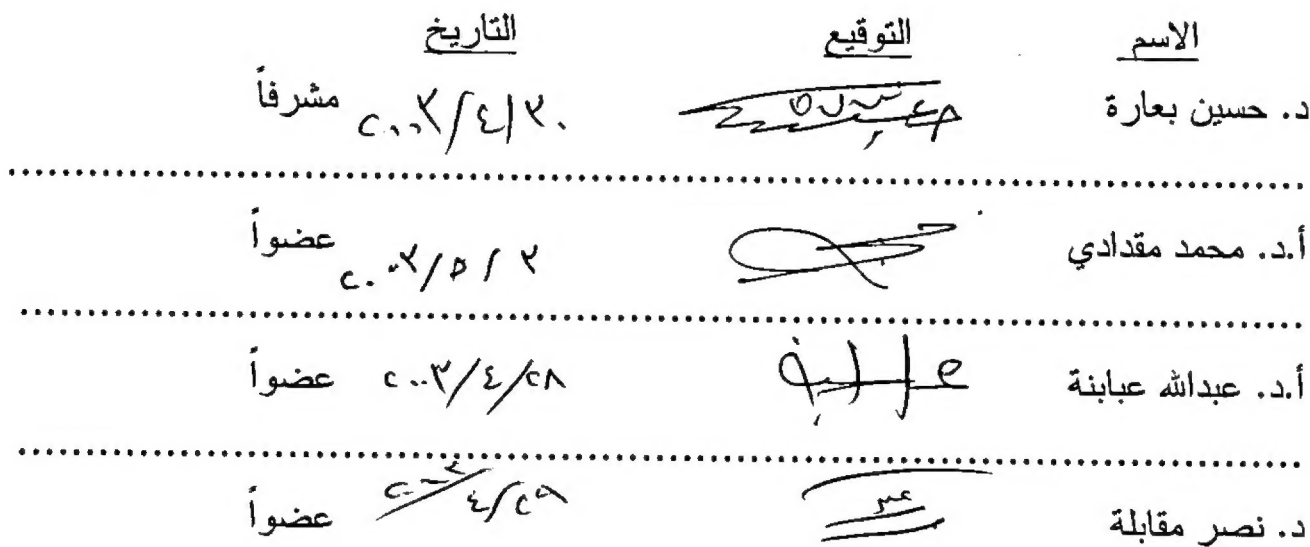 الاسم التوقيع التاريخ
د. حسين بعارة ٢٠٠٣/٤/٣٠ مشرفاً
أ.د. محمد مقدادي ٢٠٠٣/٥/٣ عضواً
أ.د. عبدالله عبابنة ٢٠٠٣/٤/٢٨ عضواً
د. نصر مقابلة عضواً